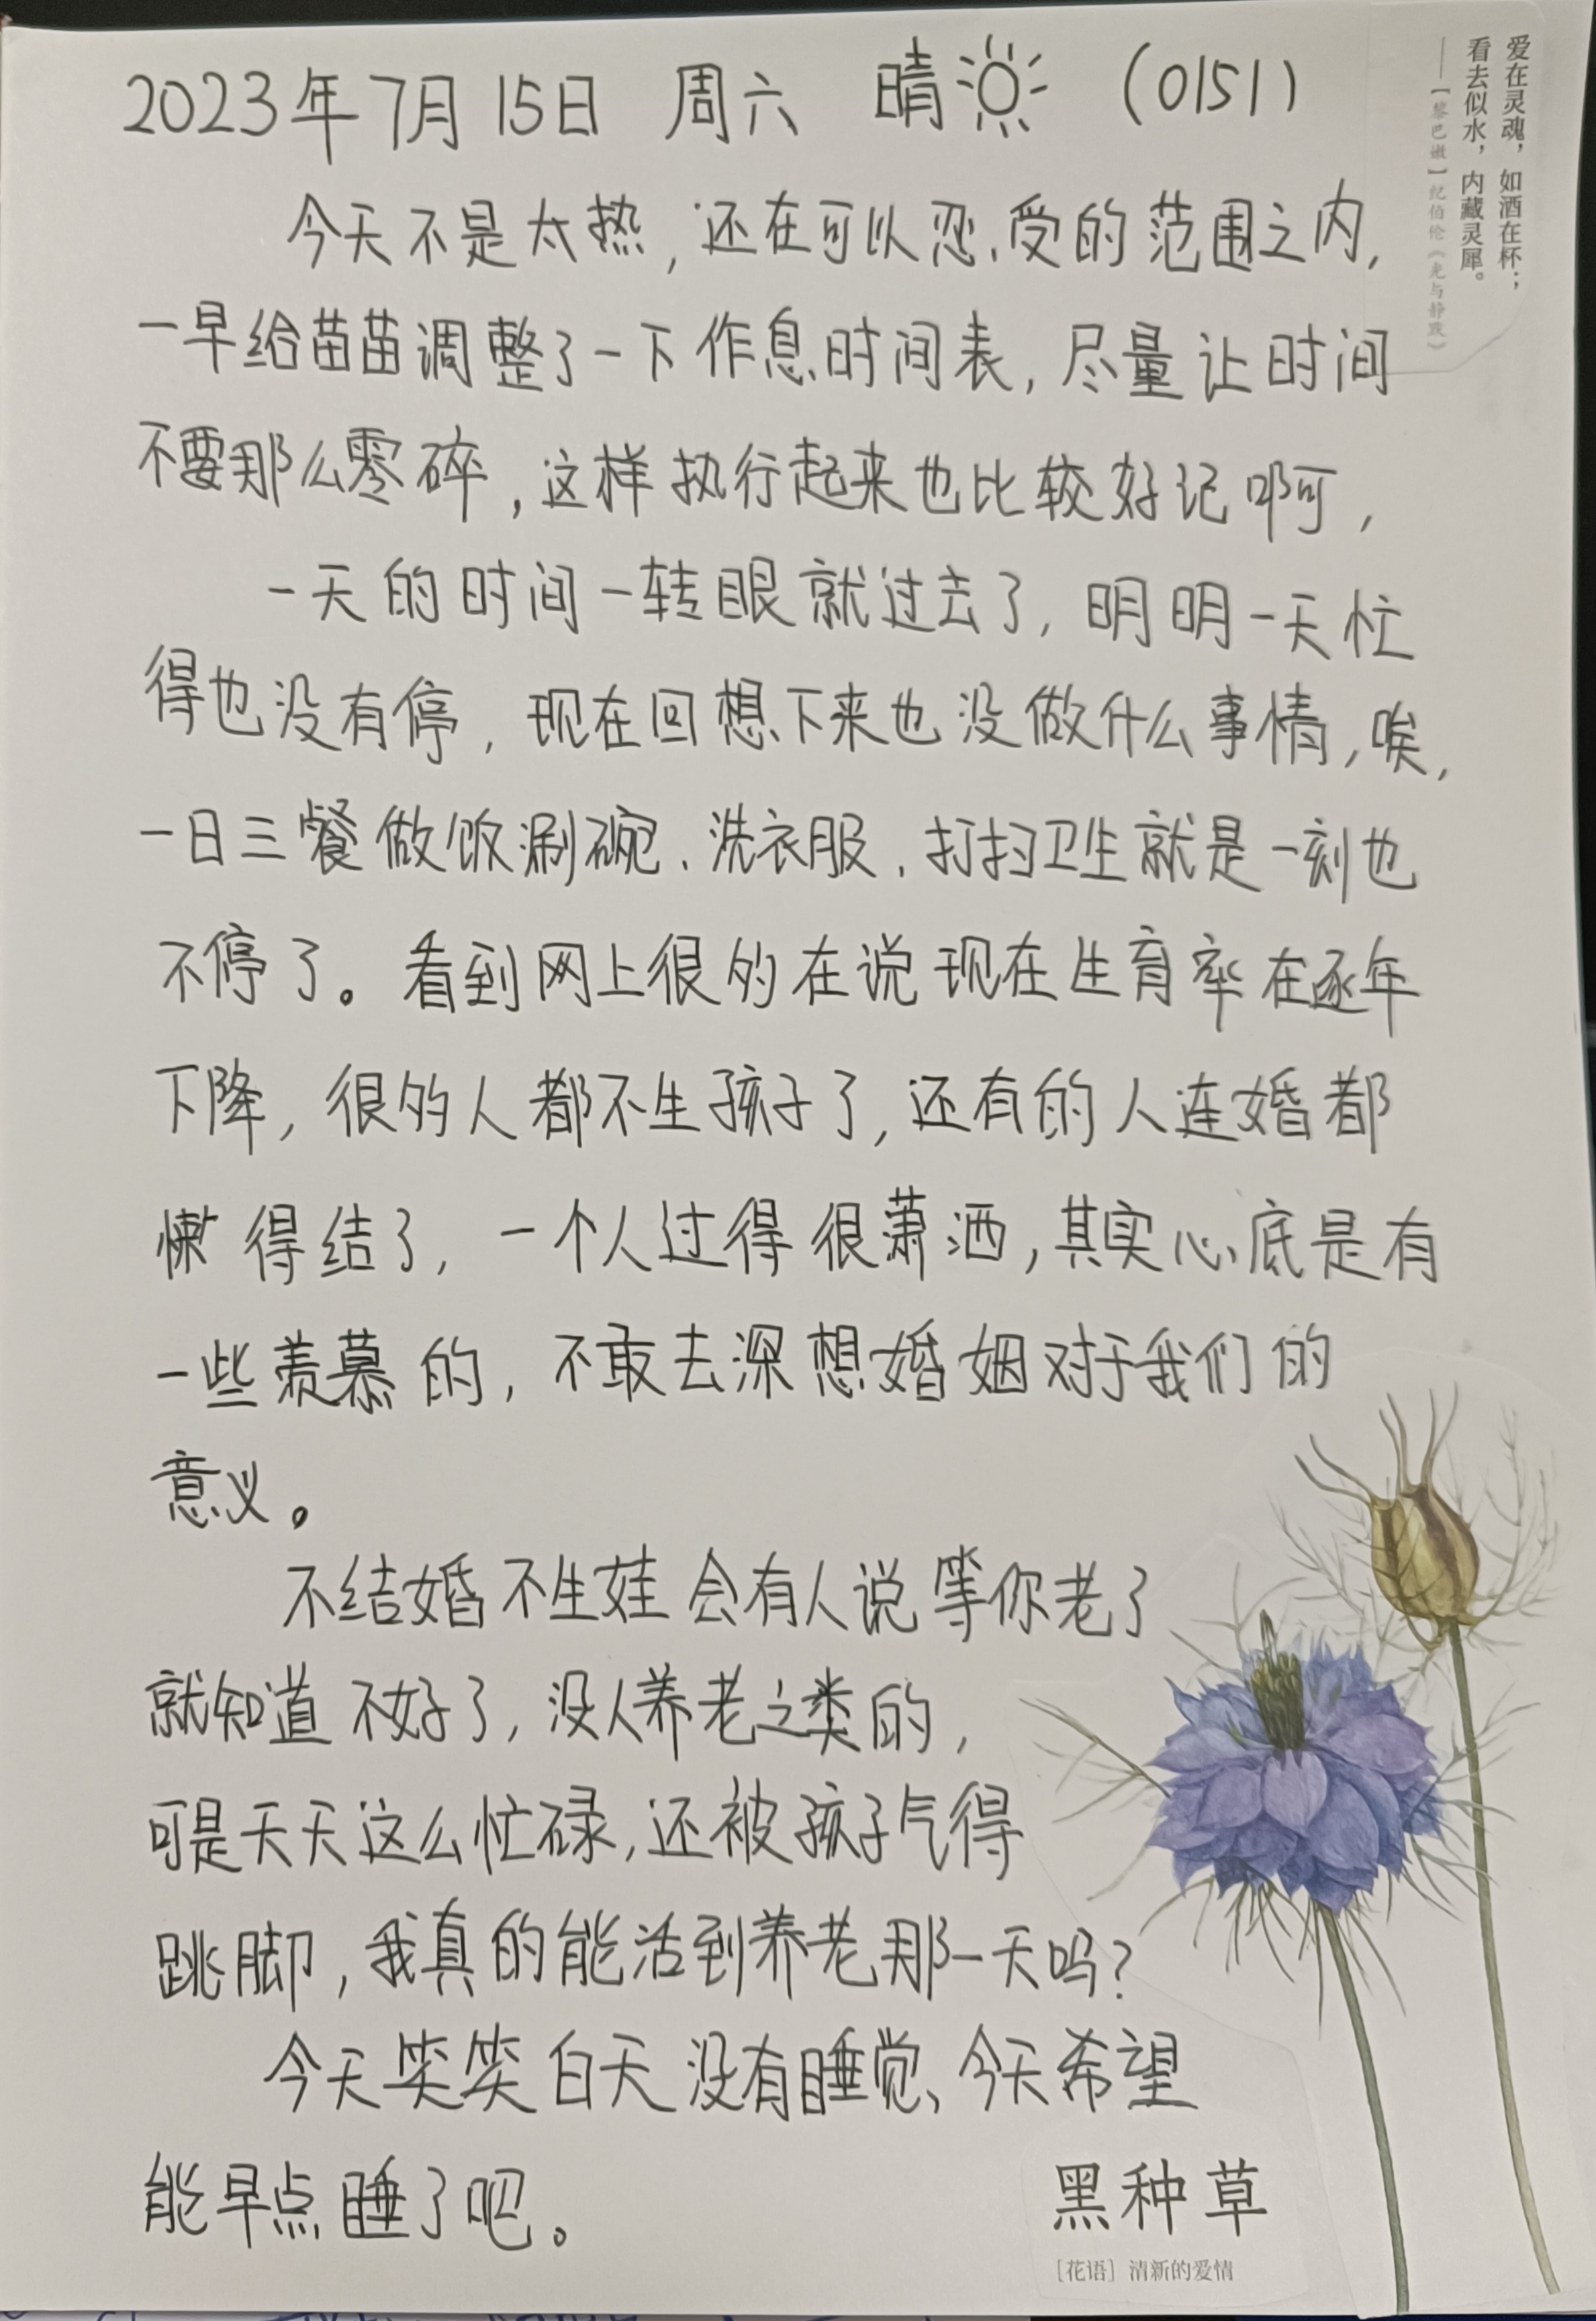 2023年7月15日 周六 晴 (0151)
今天不是太热,还在可以忍受的范围之内,
一早给苗苗调整了一下作息时间表,尽量让时间
不要那么零碎,这样执行起来也比较好记啊,
一天的时间一转眼就过去了,明明一天忙
得也没有停,现在回想下来也没做什么事情,唉,
一日三餐做饭涮碗、洗衣服、打扫卫生就是一刻也
不停了。看到网上很多在说现在生育率在逐年
下降,很多人都不生孩子了,还有的人连婚都
懒得结了,一个人过得很萧洒,其实心底是有
一些羡慕的,不敢去深想婚姻对于我们的
意义。
不结婚不生娃会有人说等你老了
就知道不好了,没人养老之类的,
可是天天这么忙碌,还被孩子气得
跳脚,我真的能活到养老那一天吗?
今天笑笑白天没有睡觉、今天希望
能早点睡了吧。
爱在灵魂,如酒在杯;
看去似水,内藏灵犀。
——【黎巴嫩】纪伯伦《光与静默》
黑种草
[花语] 清新的爱情